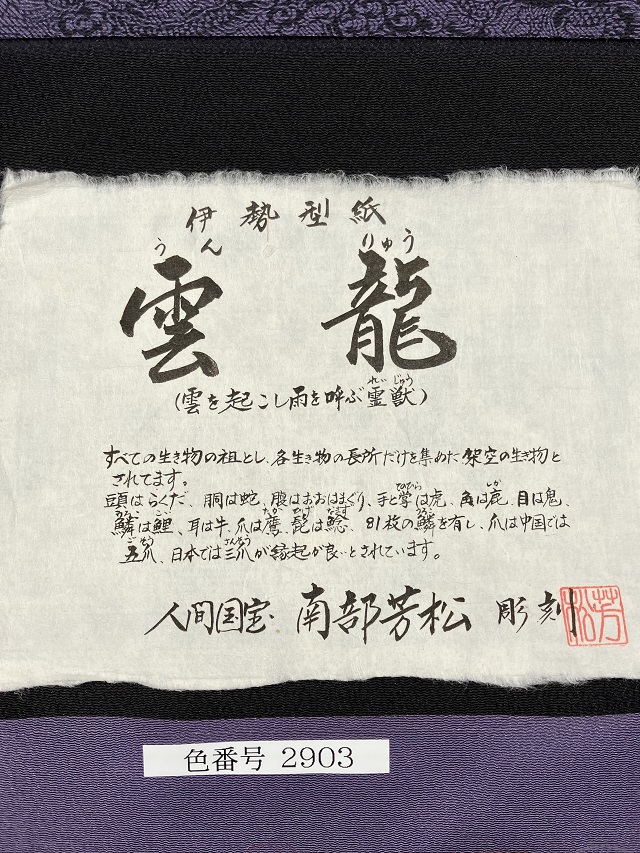 伊勢型紙
うん りゅう
雲龍
れいじゅう
(雲を起こし雨を呼ぶ霊獣)
すべての生き物の祖とし、各生き物の長所だけを集めた架空の生き物と
されてます。
てのひら しか
頭はらくだ、胴は蛇、腹はおおはまぐり、手と掌は虎、角は鹿、目は鬼、
うろこ こい たか ひげ なまず うろこ
鱗は鯉、耳は牛、爪は鷹、髭は鯰、81枚の鱗を有し、爪は中国では
ごそう さんそう
五爪、日本では三爪が縁起が良いとされています。
人間国宝 南部芳松 彫刻
芳松
色番号 2903